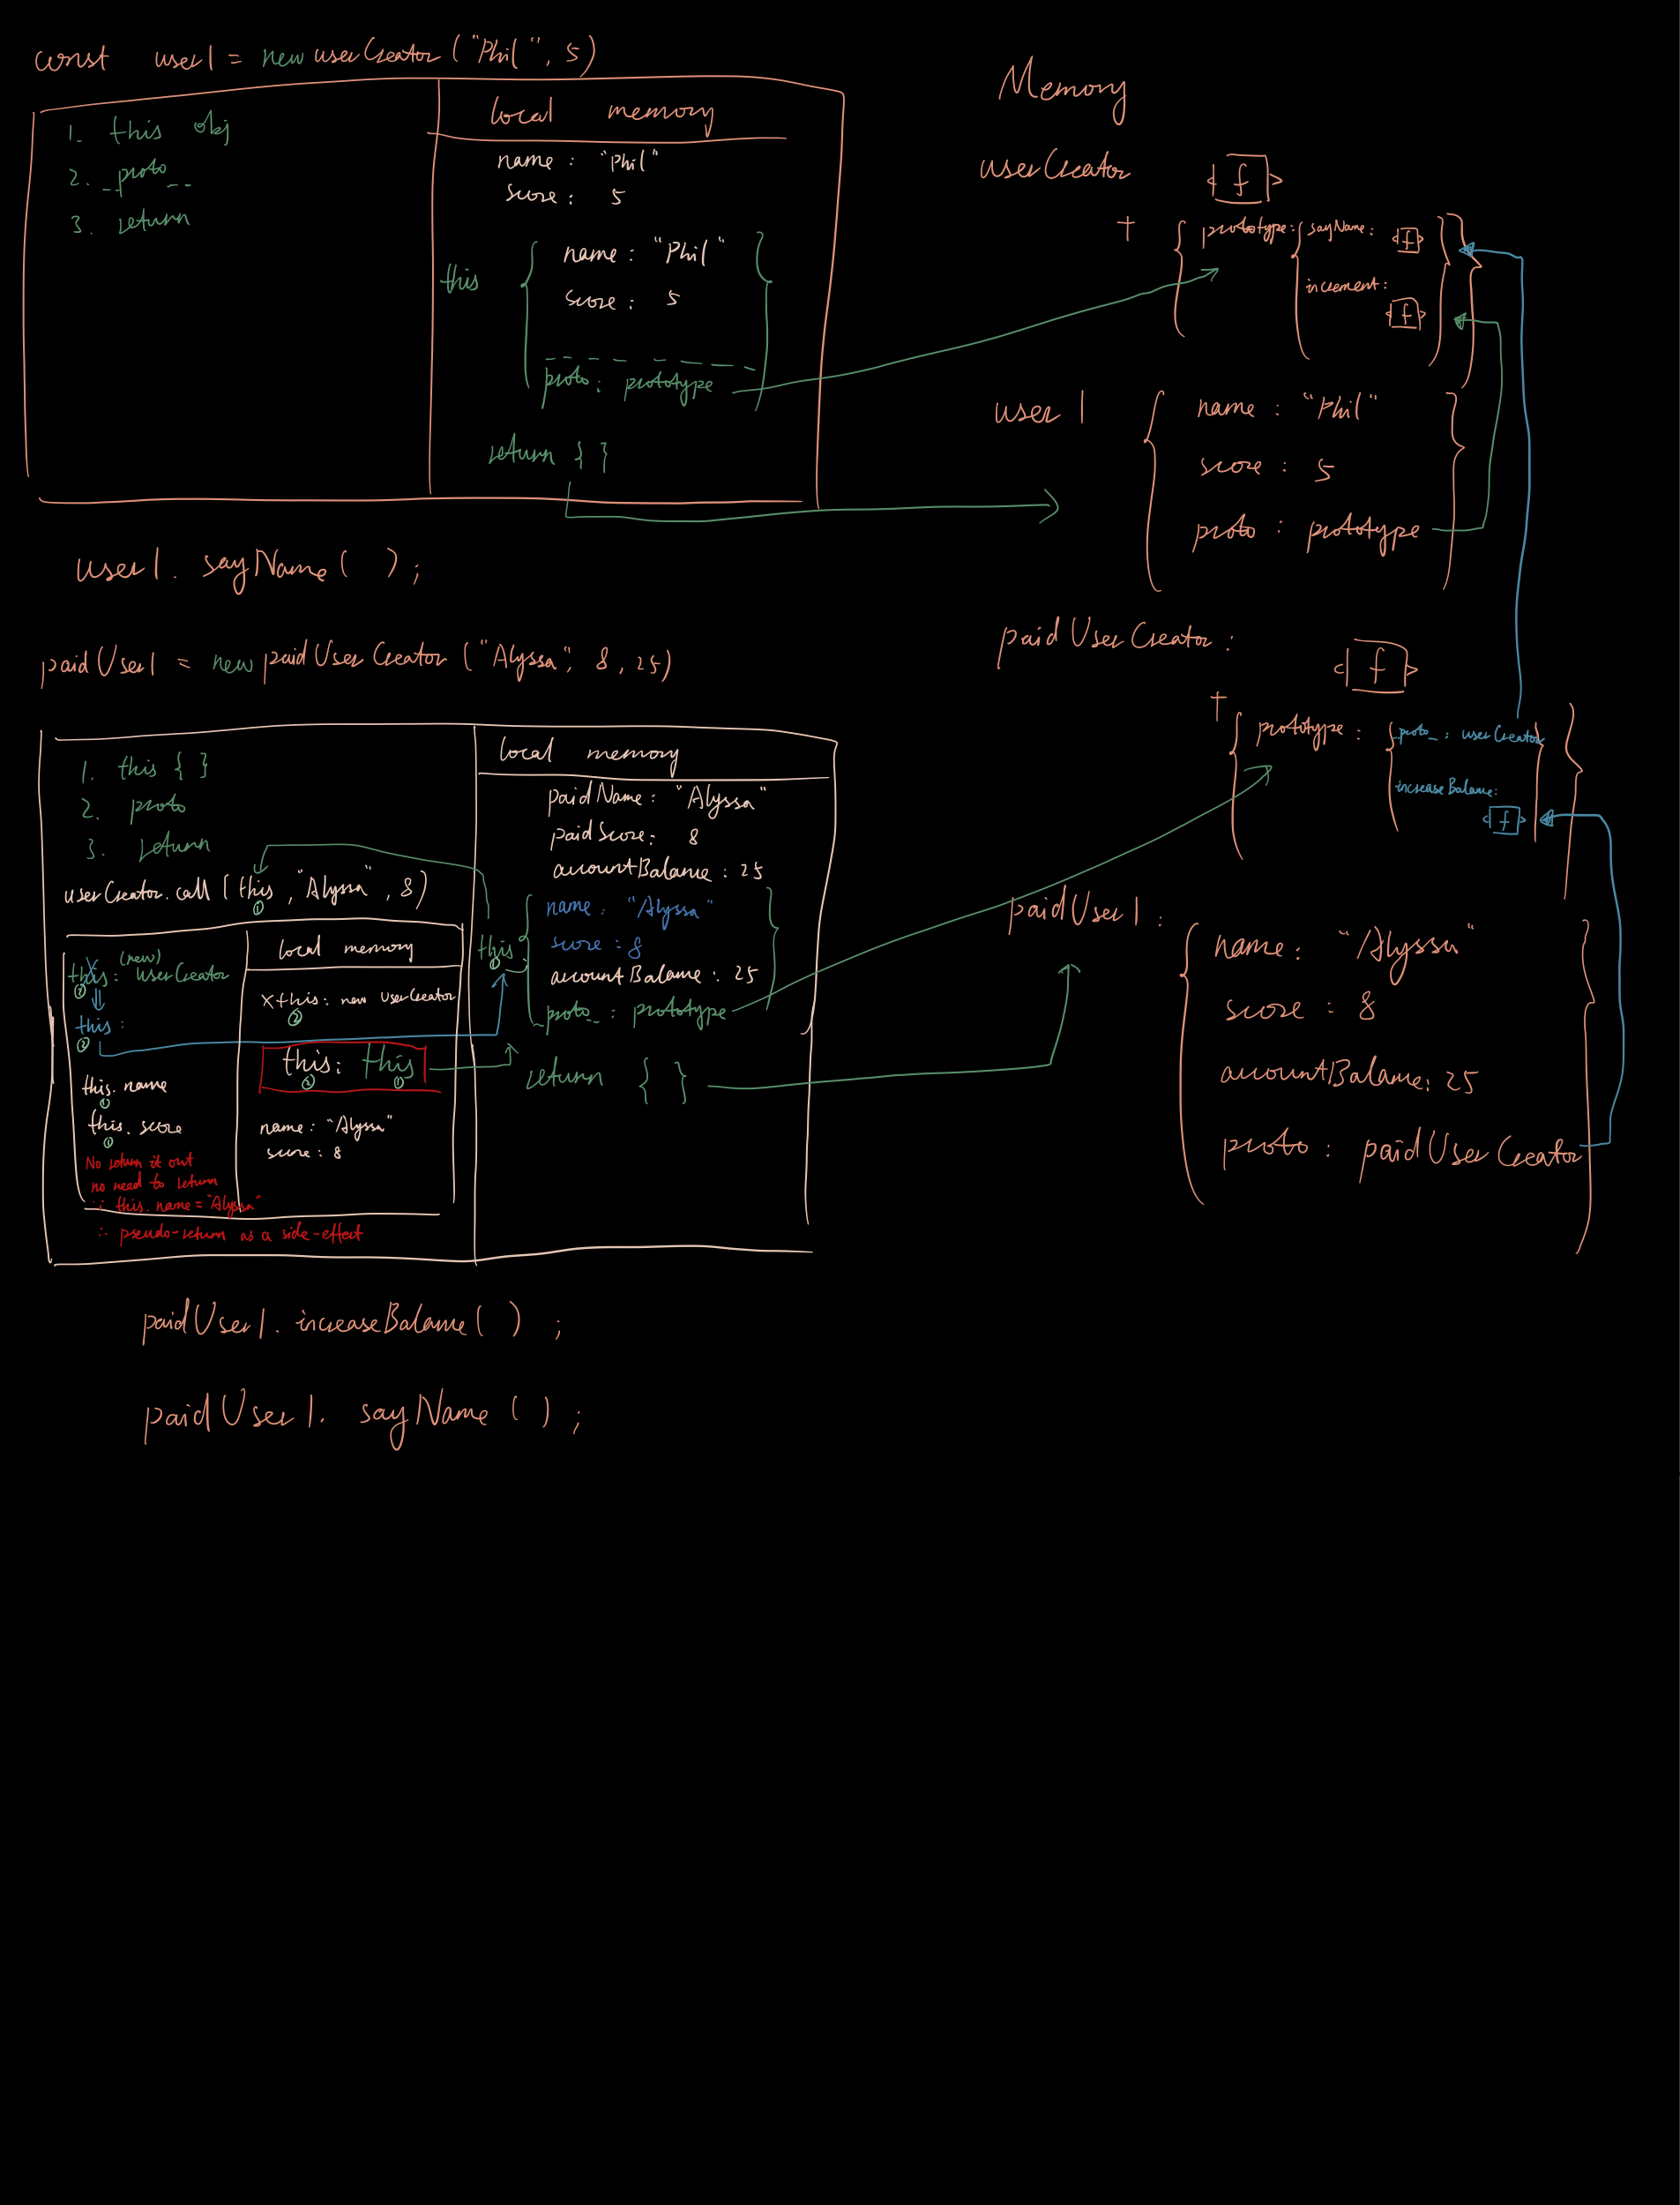 const user1 = new userCreator ("Phil", 5)
1. this obj
2. __proto__
3. return
local memory
name : "Phil"
score : 5
this { name : "Phil"
score : 5
proto : prototype }
return { }
user1. sayName ( );
paidUser1 = new paidUserCreator ("Alyssa", 8, 25)
1. this { }
2. proto
3. return
userCreator.call (this, "Alyssa", 8)
①
(new)
this: userCreator
②
⇓
this:
②
this. name
①
this. score
①
No return it out
no need to return
∵ this.name = "Alyssa"
∴ pseudo-return as a side-effect
local memory
×this: new userCreator
②
this: this
② ①
name: "Alyssa"
score: 8
local memory
paidName: "Alyssa"
paidScore: 8
accountBalance: 25
this { name: "Alyssa"
①
score: 8
accountBalance: 25
__proto__: prototype }
return { }
paidUser1. increaseBalance( ) ;
paidUser1. sayName ( ) ;
Memory
userCreator [f]
+
{ prototype: { sayName: [f]
increment:
[f] } }
user1 { name : "Phil"
score : 5
proto : prototype }
paidUserCreator :
[f]
+
{ prototype : { __proto__ : userCreator
increaseBalance:
[f] } }
paidUser1 :
{ name: "Alyssa"
score : 8
accountBalance: 25
proto : paidUserCreator }